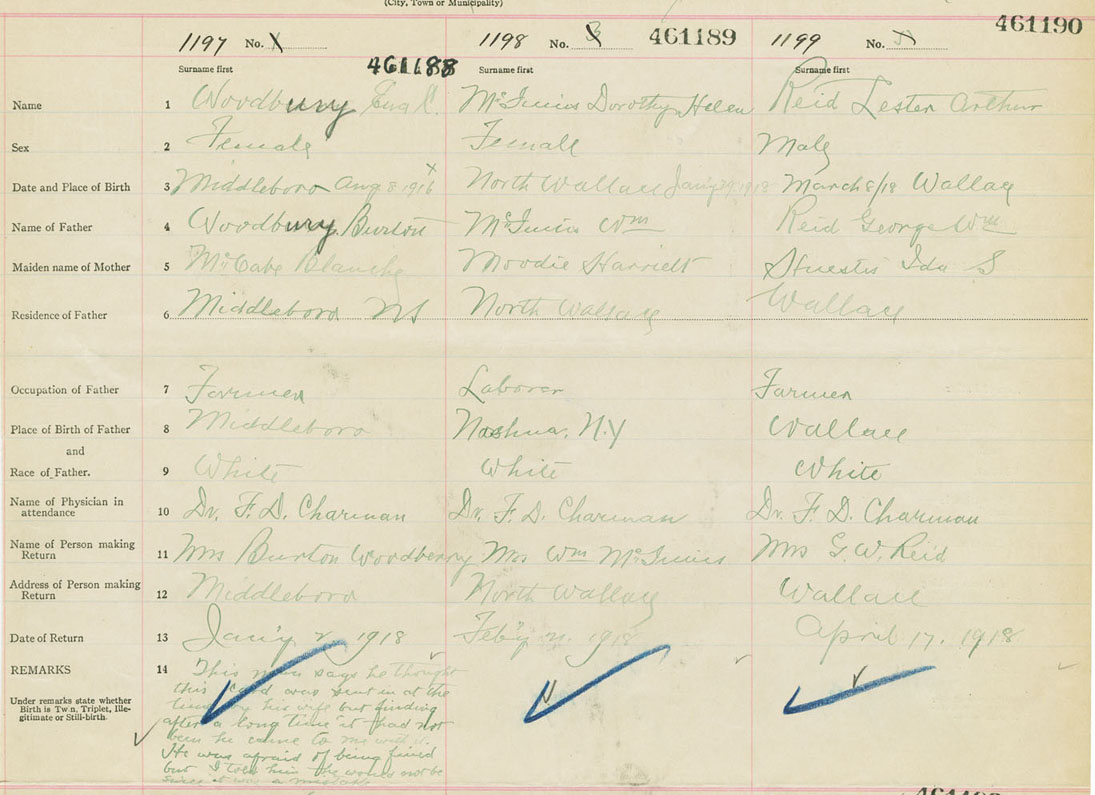 (City, Town or Municipality)
1197 No. 1198 No. 461189 1199 No. 461190
Surname first 461188 Surname first Surname first
Name 1 Woodbury McInnis Dorothy Helen Reid Lester Arthur
Sex 2 Female Female Male
Date and Place of Birth 3 Middleboro Aug 8 1916 North Wallace Jan'y 1918 March 8/18 Wallace
Name of Father 4 Woodbury Burton McInnis Wm Reid George Wm
Maiden name of Mother 5 McCabe Blanche Moodie Harriett Stuestis Ida S
Residence of Father 6 Middleboro NS North Wallace Wallace
Occupation of Father 7 Farmer Laborer Farmer
Place of Birth of Father 8 Middleboro Nashua, N.Y Wallace
and
Race of Father. 9 White White White
Name of Physician in
attendance 10 Dr. F. D. Charman Dr. F. D. Charman Dr. F. D. Charman
Name of Person making
Return 11 Mrs Burton Woodberry Mrs Wm McInnis Mrs G. W. Reid
Address of Person making
Return 12 Middleboro North Wallace Wallace
Date of Return 13 Jan'y 2, 1918 Feb'y 1918 April 17, 1918
REMARKS 14 This man says he thought
this card was sent in at the
Under remarks state whether
Birth is Twin, Triplet, Ille-
gitimate or Still-birth.
time by his wife but finding
after a long time it had not
been he came to me with it.
He was afraid of being fined
but I told him he would not be
since it was a mistake